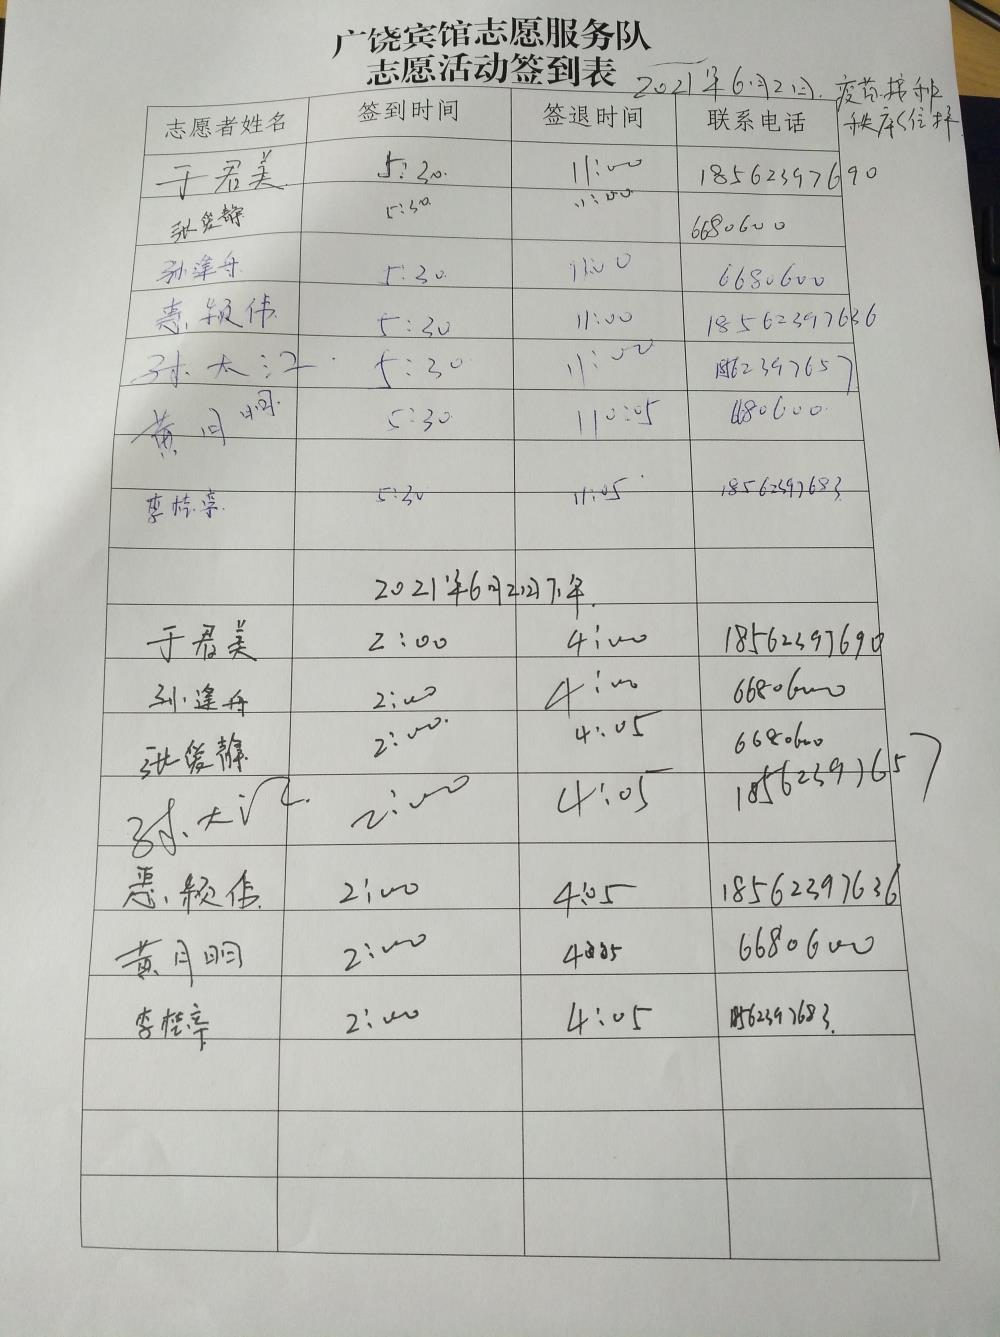 广饶宾馆志愿服务队
志愿活动签到表
2021年6月2日. 疫苗接种
秩序维持
志愿者姓名 签到时间 签退时间 联系电话
于君美 5:30 11:00 18562397690
张俊静 5:30 11:00 6680600
孙逢舟 5:30 11:00 6680600
惠颖伟 5:30 11:00 18562397636
孙大江 5:30 11:00 18562397657
黄月明 5:30 110:05 6680600
李桂亭 5:30 11:05 18562397683
2021年6月2日下午
于君美 2:00 4:00 18562397690
孙逢舟 2:00 4:00 6680600
张俊静 2:00 4:05 6680600
孙大江 2:00 4:05 18562397657
惠颖伟 2:00 4:05 18562397636
黄月明 2:00 4:05 6680600
李桂亭 2:00 4:05 18562397683